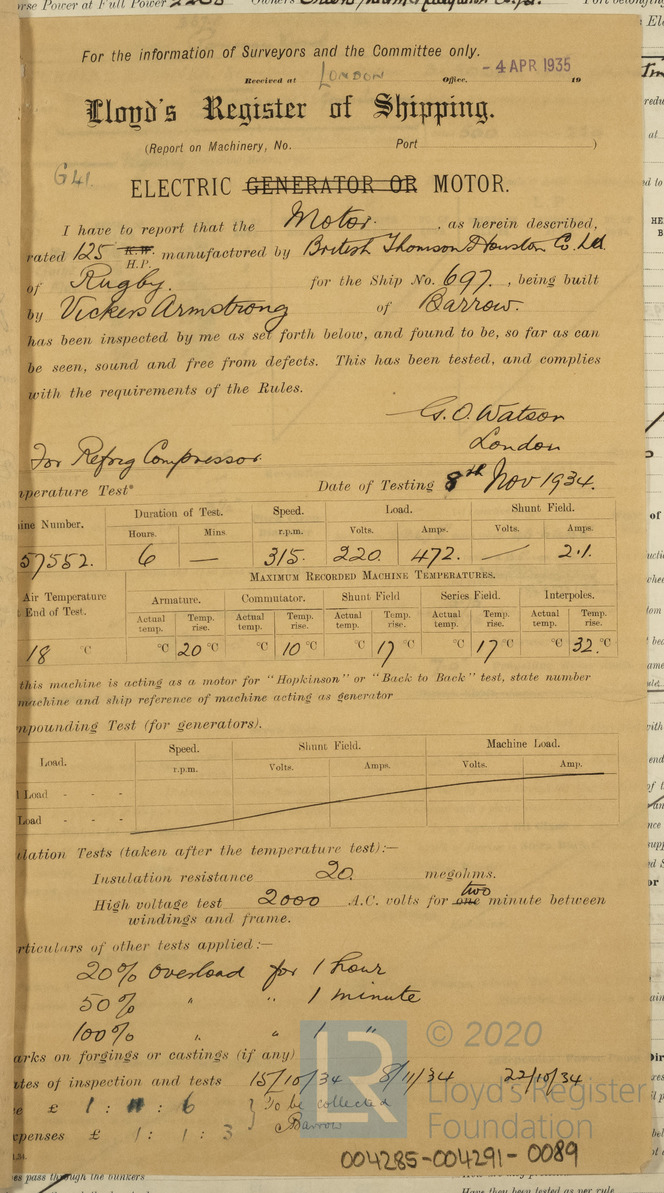 orse Power at Full Power
For the information of Surveyors and the Committee only.
Received at LONDON Office. - 4 APR 1935 19
Lloyd's Register of Shipping.
(Report on Machinery, No. Port )
G41.
ELECTRIC GENERATOR OR MOTOR.
I have to report that the Motor. , as herein described,
rated 125 K.W. H.P. manufactured by British Thomson Houston Co. Ltd
of Rugby. for the Ship No. 697. , being built
by Vickers Armstrong of Barrow.
has been inspected by me as set forth below, and found to be, so far as can
be seen, sound and free from defects. This has been tested, and complies
with the requirements of the Rules.
G. O. Watson
London
For Refrig Compressor
perature Test* Date of Testing 8th Nov 1934.
ine Number. Duration of Test. Speed. Load. Shunt Field.
Hours. Mins. r.p.m. Volts. Amps. Volts. Amps.
57552. 6 — 315. 220. 472. — 2.1.
Air Temperature End of Test. MAXIMUM RECORDED MACHINE TEMPERATURES.
Armature. Commutator. Shunt Field Series Field. Interpoles.
Actual temp. Temp. rise. Actual temp. Temp. rise. Actual temp. Temp. rise. Actual temp. Temp. rise. Actual temp. Temp. rise.
18 °C °C 20 °C °C 10 °C °C 17 °C °C 17 °C °C 32. °C
this machine is acting as a motor for "Hopkinson" or "Back to Back" test, state number
machine and ship reference of machine acting as generator
npounding Test (for generators).
Load. Speed. Shunt Field. Machine Load.
r.p.m. Volts. Amps. Volts. Amp.
l Load - - -
Load - - -
ulation Tests (taken after the temperature test):—
Insulation resistance 20. megohms.
High voltage test 2000 A.C. volts for one two minute between
windings and frame.
rticulars of other tests applied:—
20% overload for 1 hour
50% " " 1 minute
100% " " 1 "
arks on forgings or castings (if any)
ates of inspection and tests 15/10/34 8/11/34 22/10/34
e £ 1 : : 6 } To be collected
xpenses £ 1 : 1 : 3 } Barrow
LR © 2020
Lloyd's Register
Foundation
004285-004291-0089
es pass through the bunkers
Have they been tested as per rule